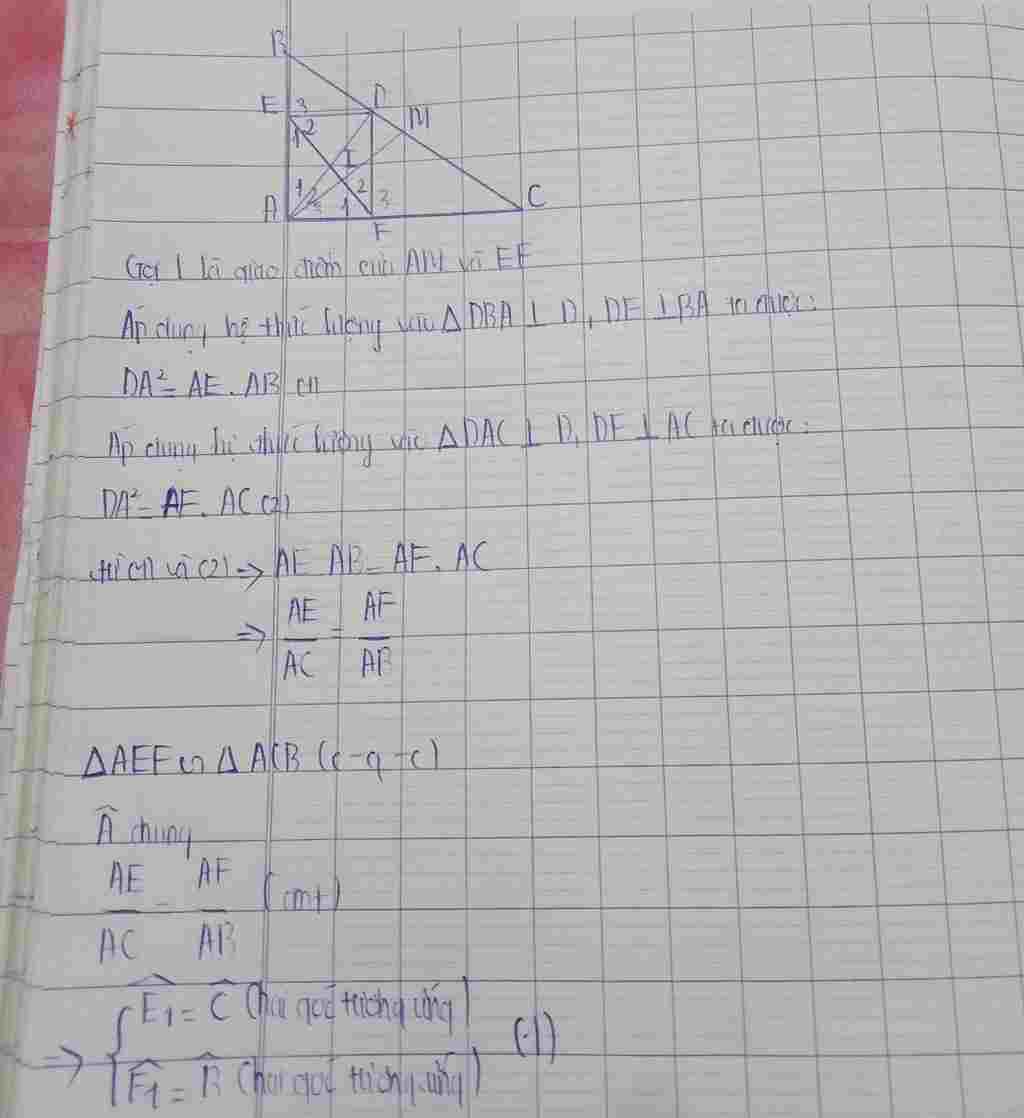 B
E 3 D
1 2 M
I
1 2 2 3 C
A 3 1
F
Gọi I là giao điểm của AM và EF
Áp dụng hệ thức lượng vào ΔDBA ⊥ D, DE ⊥ BA ta được:
DA² = AE. AB (1)
Áp dụng hệ thức lượng vào ΔDAC ⊥ D, DF ⊥ AC ta được:
DA² = AF. AC (2)
từ (1) và (2) => AE AB = AF. AC
=> AE/AC = AF/AB
ΔAEF ∽ ΔACB (c-g-c)
Â chung
AE/AC = AF/AB (cmt)
=> { Ê1 = Ĉ (hai góc tương ứng)
F̂1 = B̂ (hai góc tương ứng)